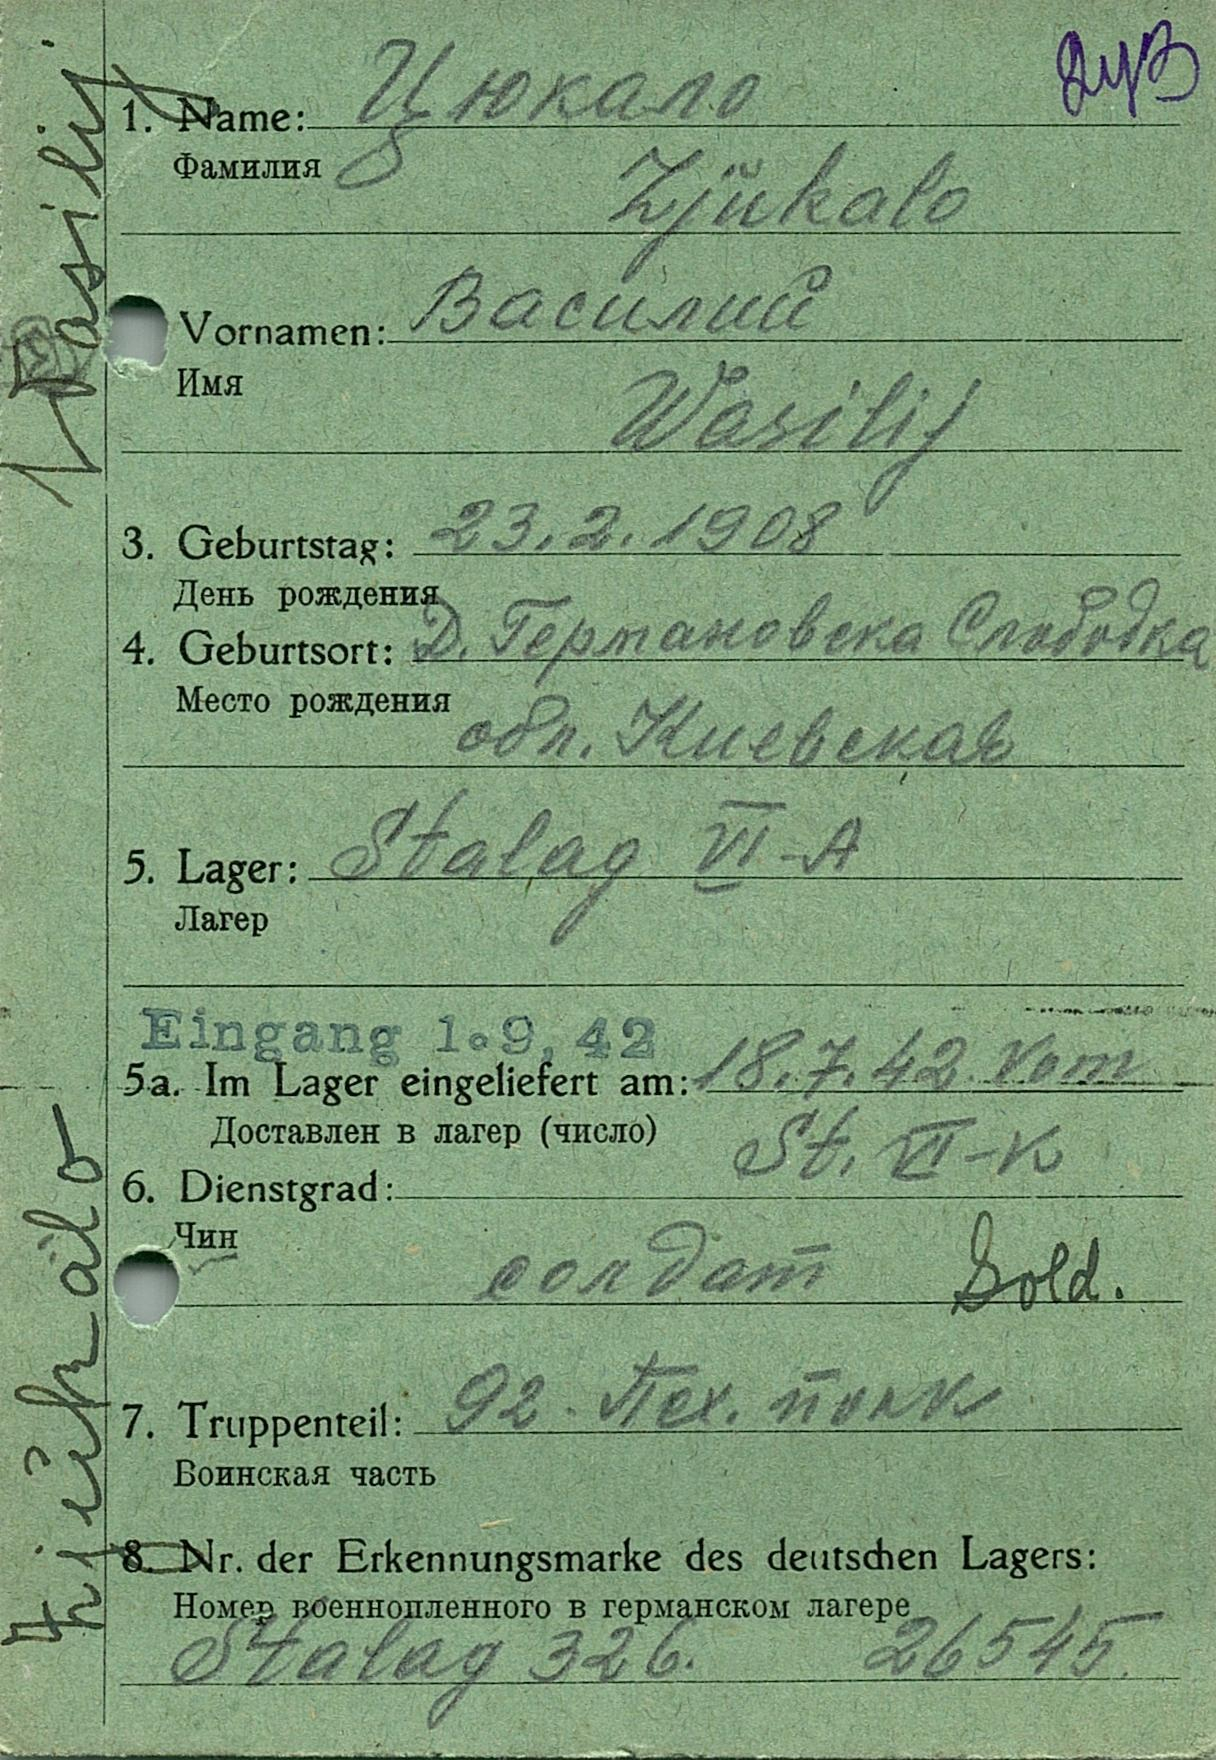 1. Name: Цюкало
Фамилия
Zjükalo
Vornamen: Василий
Имя
Wasilij
3. Geburtstag: 23.2.1908
День рождения
4. Geburtsort: Д. Германовска Слободка
Место рождения
обл. Киевская
5. Lager: Stalag VI-A
Лагер
Eingang 1.9.42
5a. Im Lager eingeliefert am: 18.7.42 vom
Доставлен в лагер (число)
St. VI-K
6. Dienstgrad:
Чин
солдат Sold.
7. Truppenteil: 92. Пех. полк
Воинская часть
8. Nr. der Erkennungsmarke des deutschen Lagers:
Номер военнопленного в германском лагере
Stalag 326. 26545.
Zjükalo
Wasilij